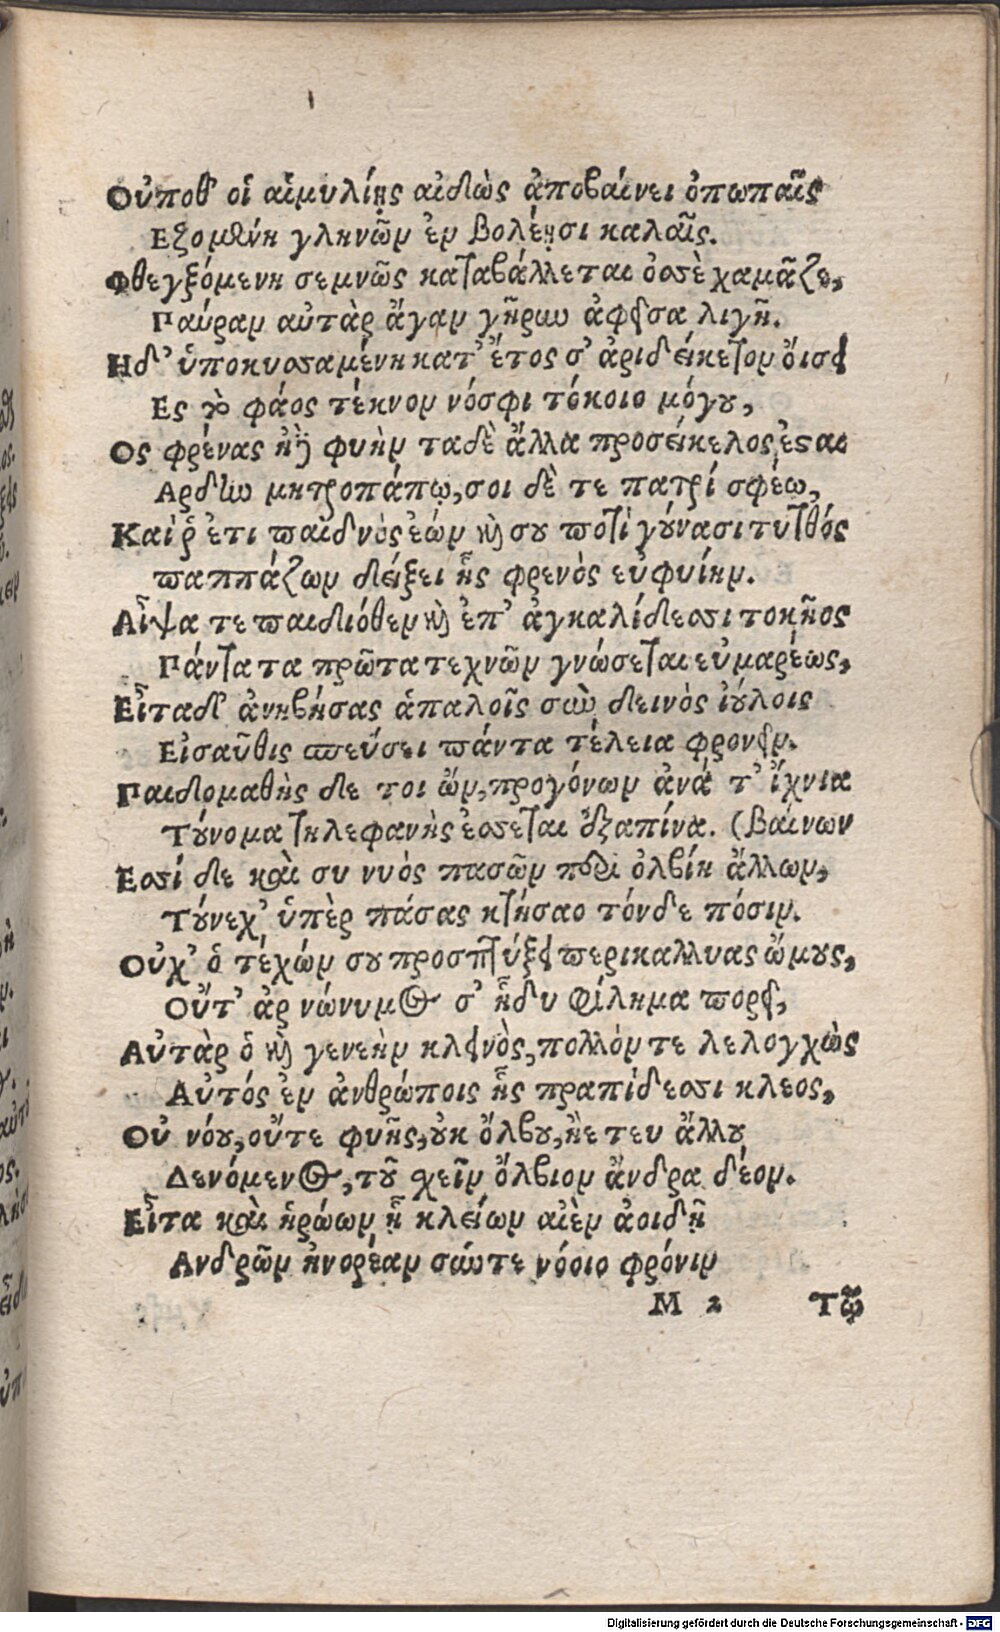 Οὔποθ' οἱ αἱμυλίης αἰδὼς ἀποβαίνει ὀπωπαῖς
Εζομένη γληνῶν ἐν βολέῃσι καλαῖς.
Φθεγξόμενη σεμνῶς καταβάλλεται ὄσσε χαμᾶζε,
Παύραν αὐτὰρ ἄγαν γῆρυν ἀφεῖσα λιγῆ.
Ηδ' ὑποκυσσαμένη κατ' ἔτος σ' ἀριδείκετον οἴσει
Ες γὸ φάος τέκνον νόσφι τόκοιο μόγου,
Ος φρένας ἠὲ φυὴν ταδὲ ἄλλα προσείκελος ἔσται
Αρδίω μητροπάπω, σοι δὲ τε πατρί σφέω,
Καί ῥ ἔτι παιδνὸς ἐών καὶ σου ποτὶ γούνασι τυτθός
παππάζων δείξει ἧς φρενὸς εὐφυίην.
Αἶψα τε παιδιόθεν καὶ ἐπ' ἀγκαλίδεσσι τοκῆος
Πάντα τα πρῶτα τεχνῶν γνώσεται εὐμαρέως,
Εἶτα δ' ἀνηβήσας ἁπαλοῖς σὺν δεινὸς ἰούλοις
Εἰσαῦθις σπεύσει πάντα τέλεια φρονεῖν.
Παιδομαθὴς δε τοι ὤν, προγόνων ἀνά τ' ἴχνια
Τούνομα τηλεφανὴς ἔσσεται ἐξαπίνα. (βαίνων
Εσσί δε καὶ συ νυὸς πασῶν περὶ ὀλβίη ἄλλων,
Τούνεχ' ὑπὲρ πάσας κτήσαο τόνδε πόσιν.
Οὐχ' ὁ τέχών σου προσπτύξει περικαλλυας ὤμους,
Οὔτ' ἀρ νώνυμος σ' ἧδυ φίλημα πορεῖ,
Αὐτὰρ ὁ καὶ γενεὴν κλεινὸς, πολλόν τε λελογχὼς
Αὐτός ἐν ἀνθρώποις ἧς πραπίδεσσι κλεος,
Οὐ νόου, οὔτε φυῆς, οὐκ ὄλβου, ἢε τευ ἄλλου
Δενόμενος, τοῦ χεῖν ὄλβιον ἄνδρα δέον.
Εἶτα καὶ ἡρώων ᾗ κλείων αἰὲν ἀοιδῇ
Ανδρῶν ἠνορέαν σύν τε νόοιο φρόνιν
M 2 Τῷ
Digitalisierung gefördert durch die Deutsche Forschungsgemeinschaft - DFG